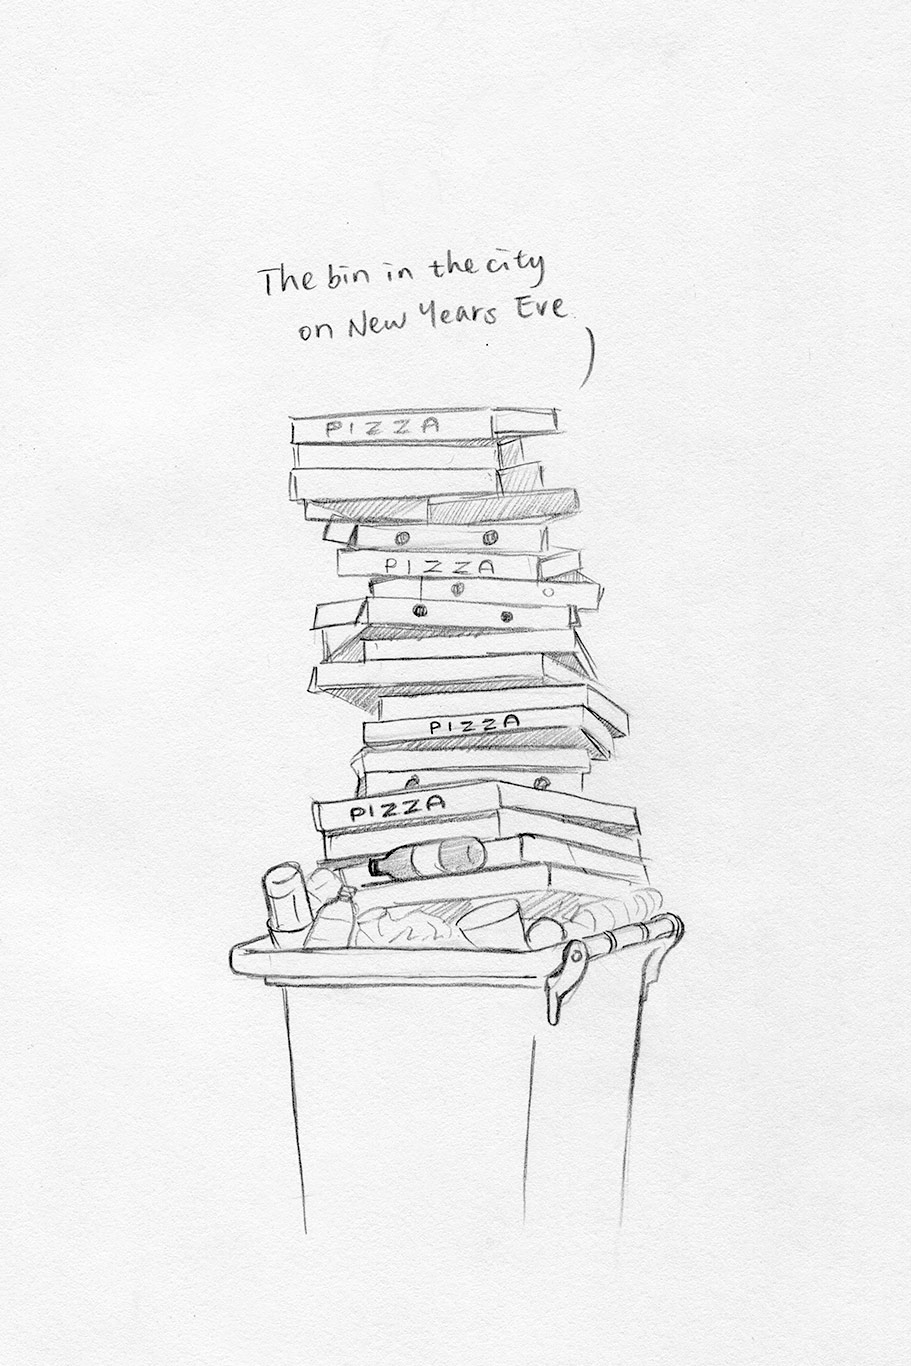 The bin in the city
on New Years Eve
PIZZA
PIZZA
PIZZA
PIZZA